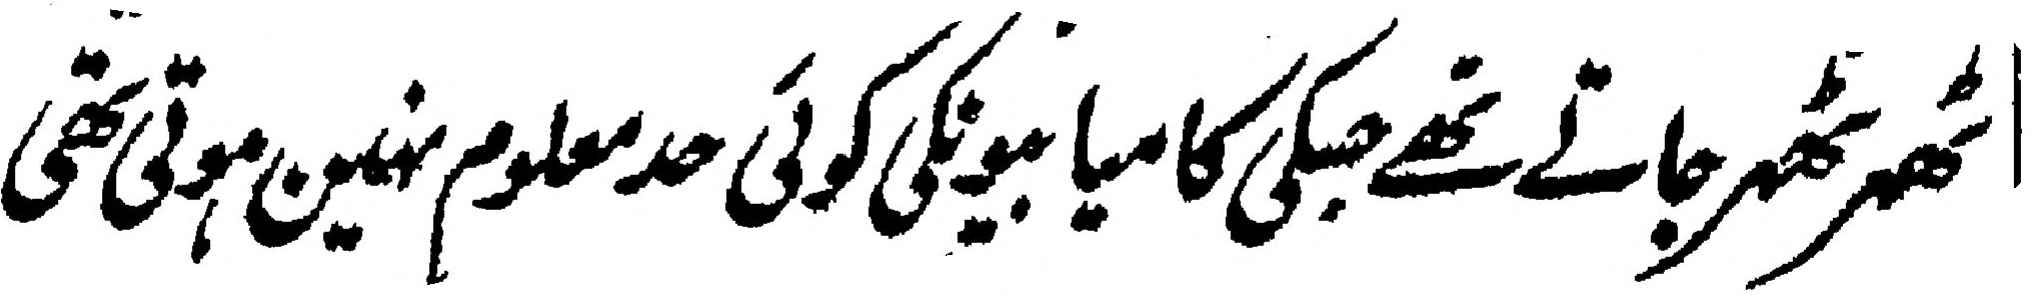 ٹھہر ٹھہر جاتے تھے جسکی کامیابیونکی کوئی حد معلوم نہین ہوتی تھی